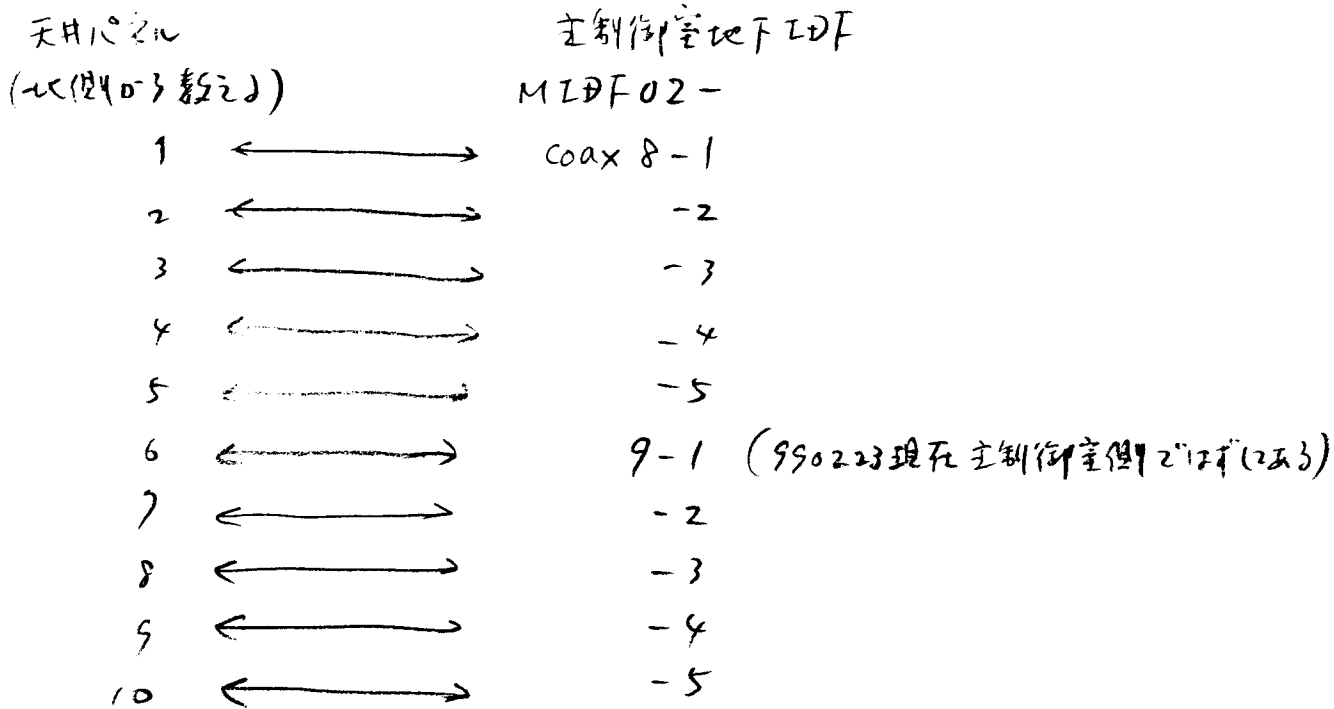 天井パネル 主制御室地下IDF
(北側から数える) MIDF02-
1 ↔ coax 8-1
2 ↔ -2
3 ↔ -3
4 ↔ -4
5 ↔ -5
6 ↔ 9-1 (990223現在主制御室側ではずしてある)
7 ↔ -2
8 ↔ -3
9 ↔ -4
10 ↔ -5